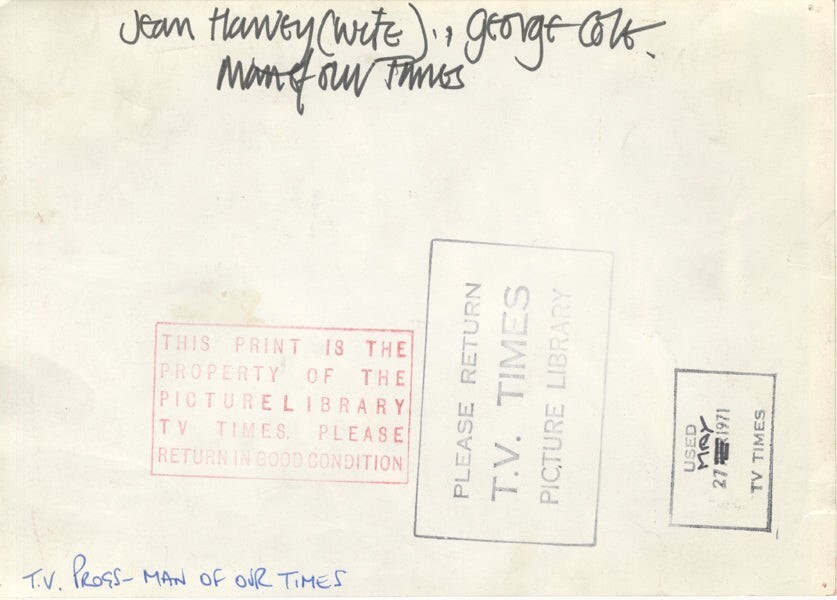 Jean Harvey (wife) .. George Cole.
Man of our Times
THIS PRINT IS THE
PROPERTY OF THE
PICTURE LIBRARY
TV TIMES. PLEASE
RETURN IN GOOD CONDITION
PLEASE RETURN
T.V. TIMES
PICTURE LIBRARY
USED
MAY
27 1971
TV TIMES
T.V. PROGS - MAN OF OUR TIMES